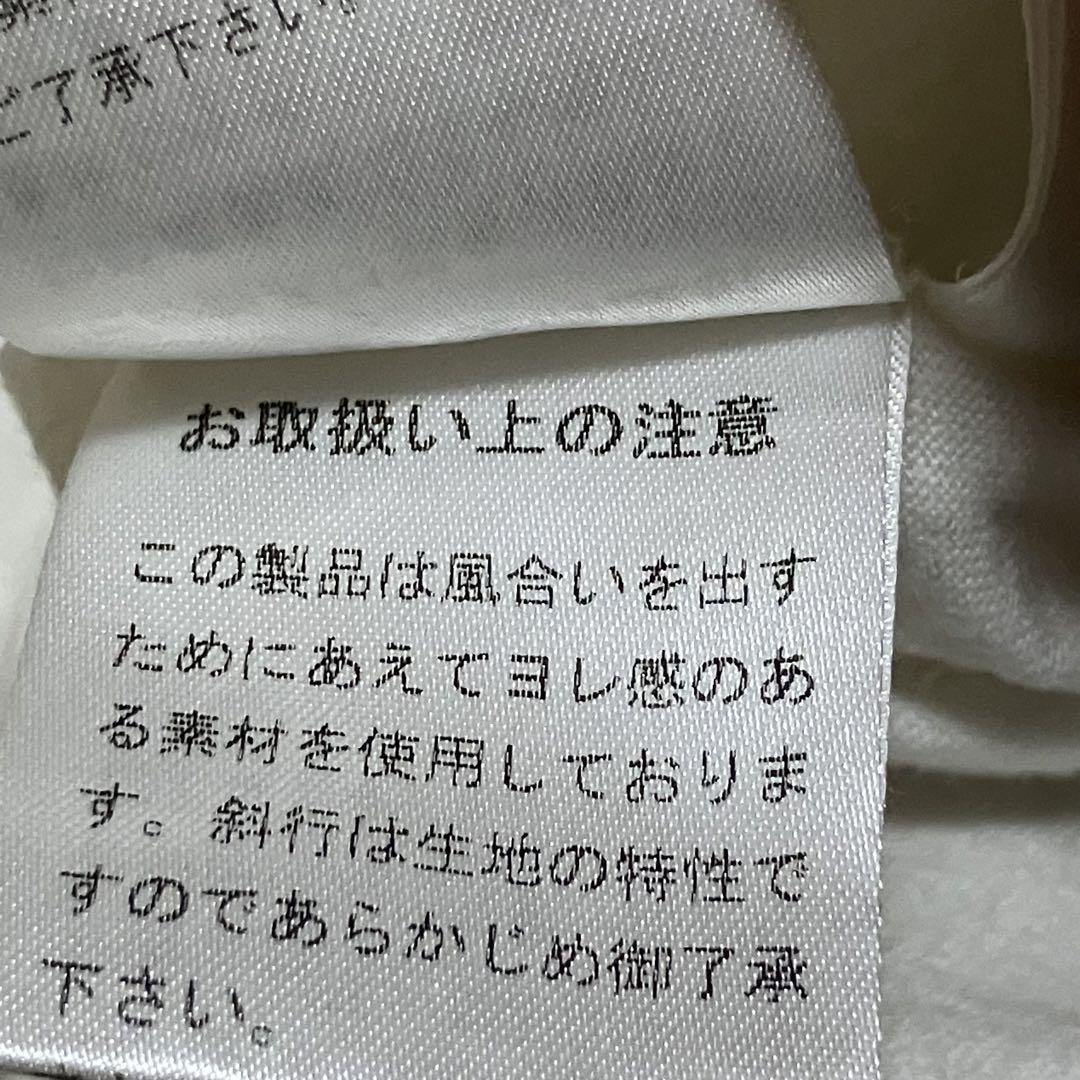 ご了承下さい。
お取扱い上の注意
この製品は風合いを出す
ためにあえてヨレ感のあ
る素材を使用しておりま
す。斜行は生地の特性で
すのであらかじめ御了承
下さい。